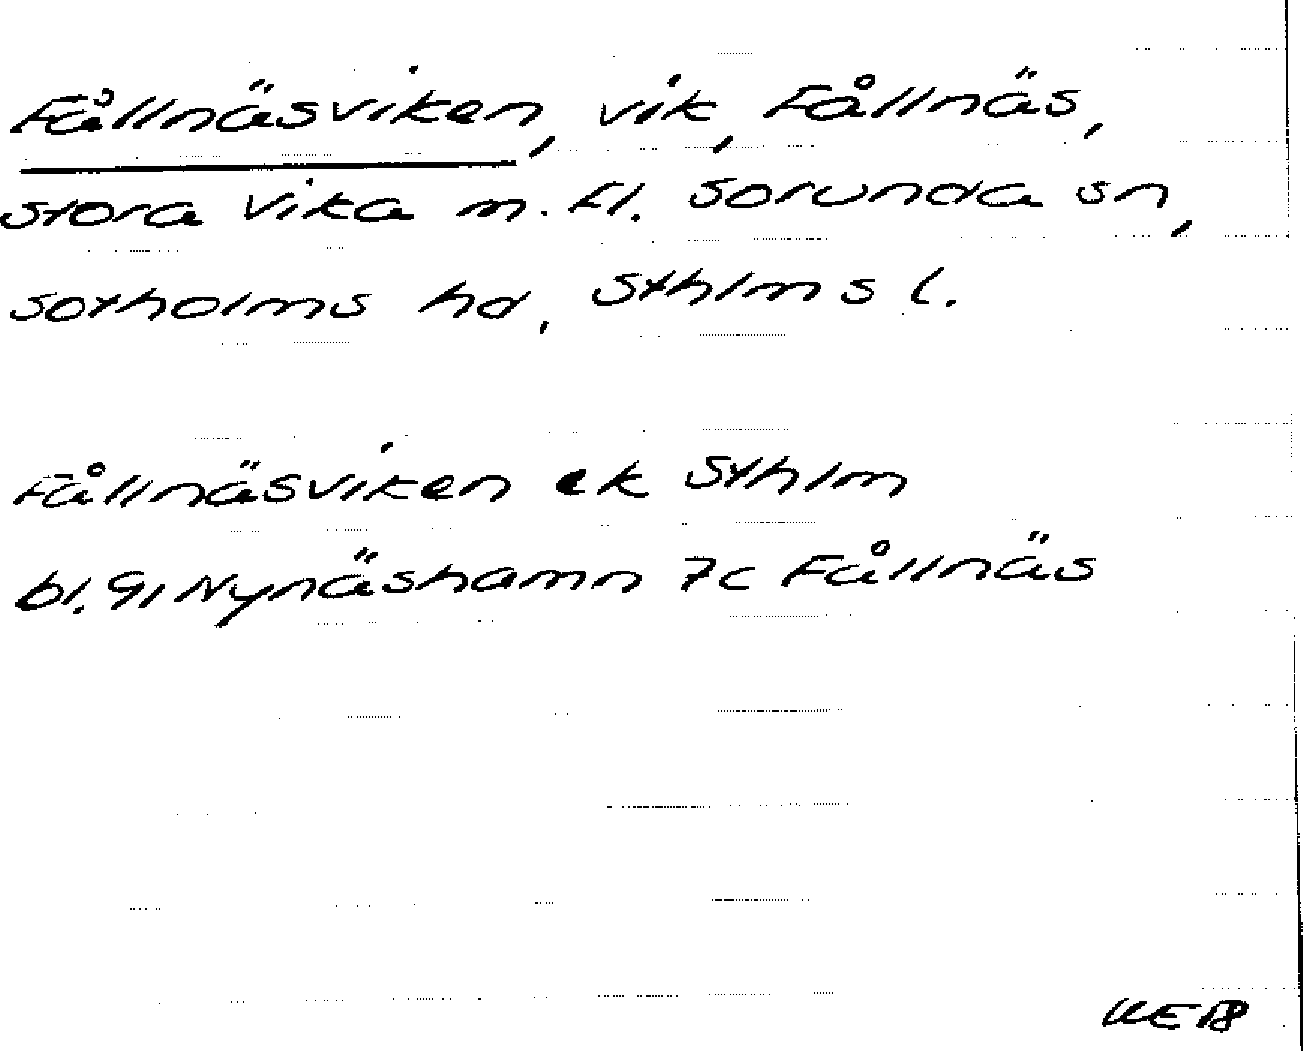 Fållnäsviken, vik, Fållnäs,
Stora Vika m. fl. Sorunda sn,
Sotholms hd, Sthlms l.
Fållnäsviken ek Sthlm
bl. 91 Nynäshamn 7c Fållnäs